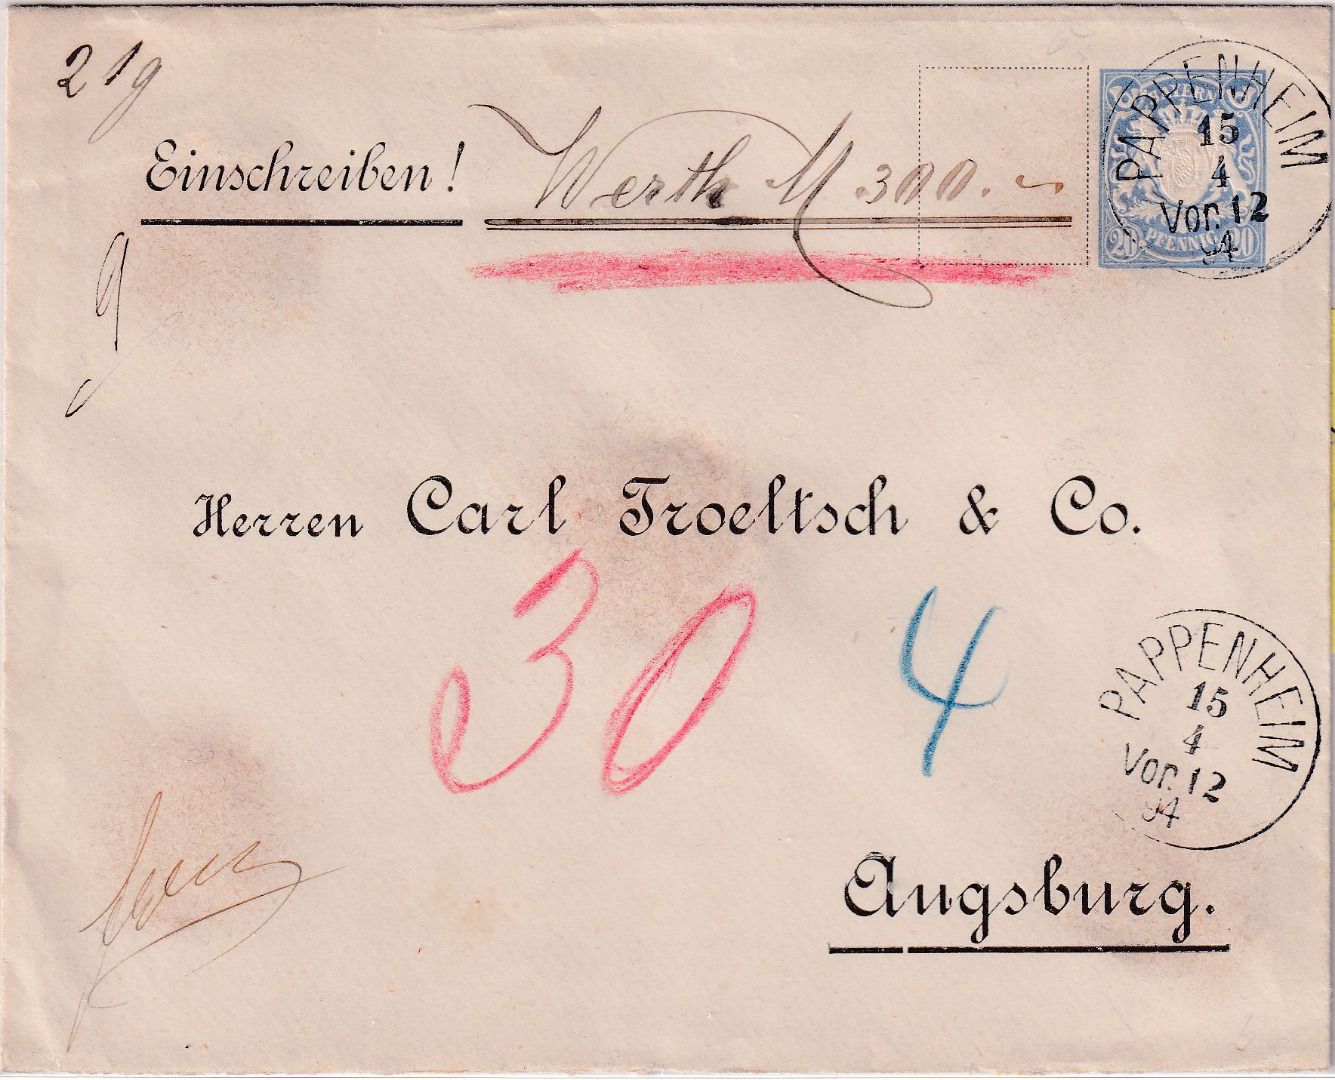 21g
Einschreiben! Werth M 300.~
BAYERN
20 PFENNIG 20
PAPPENHEIM
15
4
Vor. 12
94
9
Herren Carl Troeltsch & Co.
30 4
PAPPENHEIM
15
4
Vor. 12
94
Augsburg.